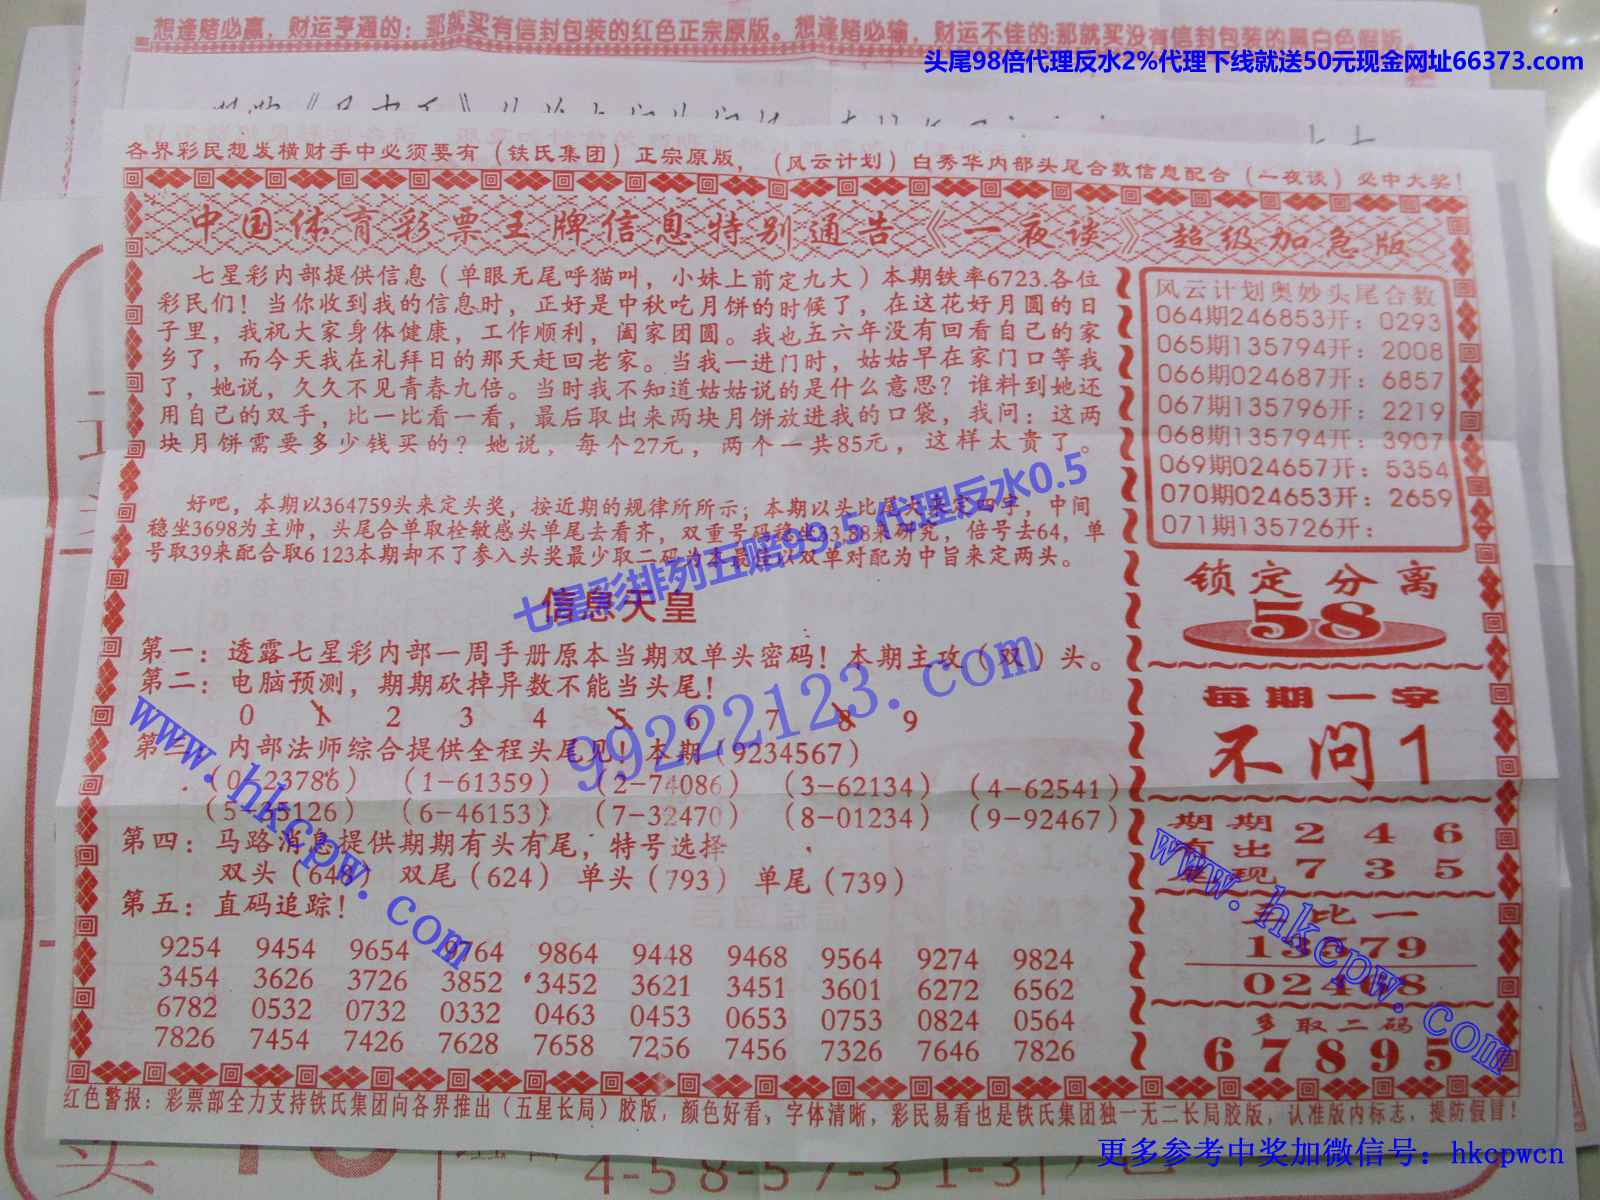 想逢赌必赢，财运亨通的：那就买有信封包装的红色正宗原版。想逢赌必输，财运不佳的:那就买没有信封包装的黑白色假版
头尾98倍代理反水2%代理下线就送50元现金网址66373.com
各界彩民想发横财手中必须要有（铁氏集团）正宗原版，（风云计划）白秀华内部头尾合数信息配合（一夜谈）必中大奖！
中国体育彩票王牌信息特别通告《一夜谈》超级加急版
七星彩内部提供信息（单眼无尾呼猫叫，小妹上前定九大）本期铁率6723.各位
彩民们！当你收到我的信息时，正好是中秋吃月饼的时候了，在这花好月圆的日
子里，我祝大家身体健康，工作顺利，阖家团圆。我也五六年没有回看自己的家
乡了，而今天我在礼拜日的那天赶回老家。当我一进门时，姑姑早在家门口等我
了，她说，久久不见青春九倍。当时我不知道姑姑说的是什么意思？谁料到她还
用自己的双手，比一比看一看，最后取出来两块月饼放进我的口袋，我问：这两
块月饼需要多少钱买的？她说，每个27元，两个一共85元，这样太贵了。
好吧，本期以364759头来定头奖，按近期的规律所所示；本期以头比尾大来定四字，中间
稳坐3698为主帅，头尾合单取栓敏感头单尾去看齐，双重号码稳坐33.88来研究，倍号去64，单
号取39来配合取6 123本期却不了参入头奖最少取二码为本最佳以双单对配为中旨来定两头。
七星彩排列五赔99.5 代理反水0.5
信息天皇
第一：透露七星彩内部一周手册原本当期双单头密码！本期主攻（双）头。
第二：电脑预测，期期砍掉异数不能当头尾！
0 1 2 3 4 5 6 7 8 9
第三：内部法师综合提供全程头尾见！本期（9234567）
（0-23786） （1-61359） （2-74086） （3-62134） （4-62541）
（5-65126） （6-46153） （7-32470） （8-01234） （9-92467）
第四：马路消息提供期期有头有尾，特号选择
双头（648） 双尾（624） 单头（793） 单尾（739）
第五：直码追踪！
9254 9454 9654 9764 9864 9448 9468 9564 9274 9824
3454 3626 3726 3852 3452 3621 3451 3601 6272 6562
6782 0532 0732 0332 0463 0453 0653 0753 0824 0564
7826 7454 7426 7628 7658 7256 7456 7326 7646 7826
风云计划奥妙头尾合数
064期246853开：0293
065期135794开：2008
066期024687开：6857
067期135796开：2219
068期135794开：3907
069期024657开：5354
070期024653开：2659
071期135726开：
锁定分离
58
每期一字
不问1
期期 2 4 6
有出
现 7 3 5
五比一
13579
02468
多取二码
67895
www.hkcpw.com
99222123.com
www.hkcpw.com
红色警报：彩票部全力支持铁氏集团向各界推出（五星长局）胶版，颜色好看，字体清晰，彩民易看也是铁氏集团独一无二长局胶版，认准版内标志，提防假冒！
更多参考中奖加微信号：hkcpwcn
4-58-57-31-3